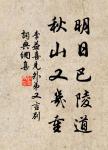 明日巴陵道
秋山又幾重
李益喜見外弟又言別
詞典網集